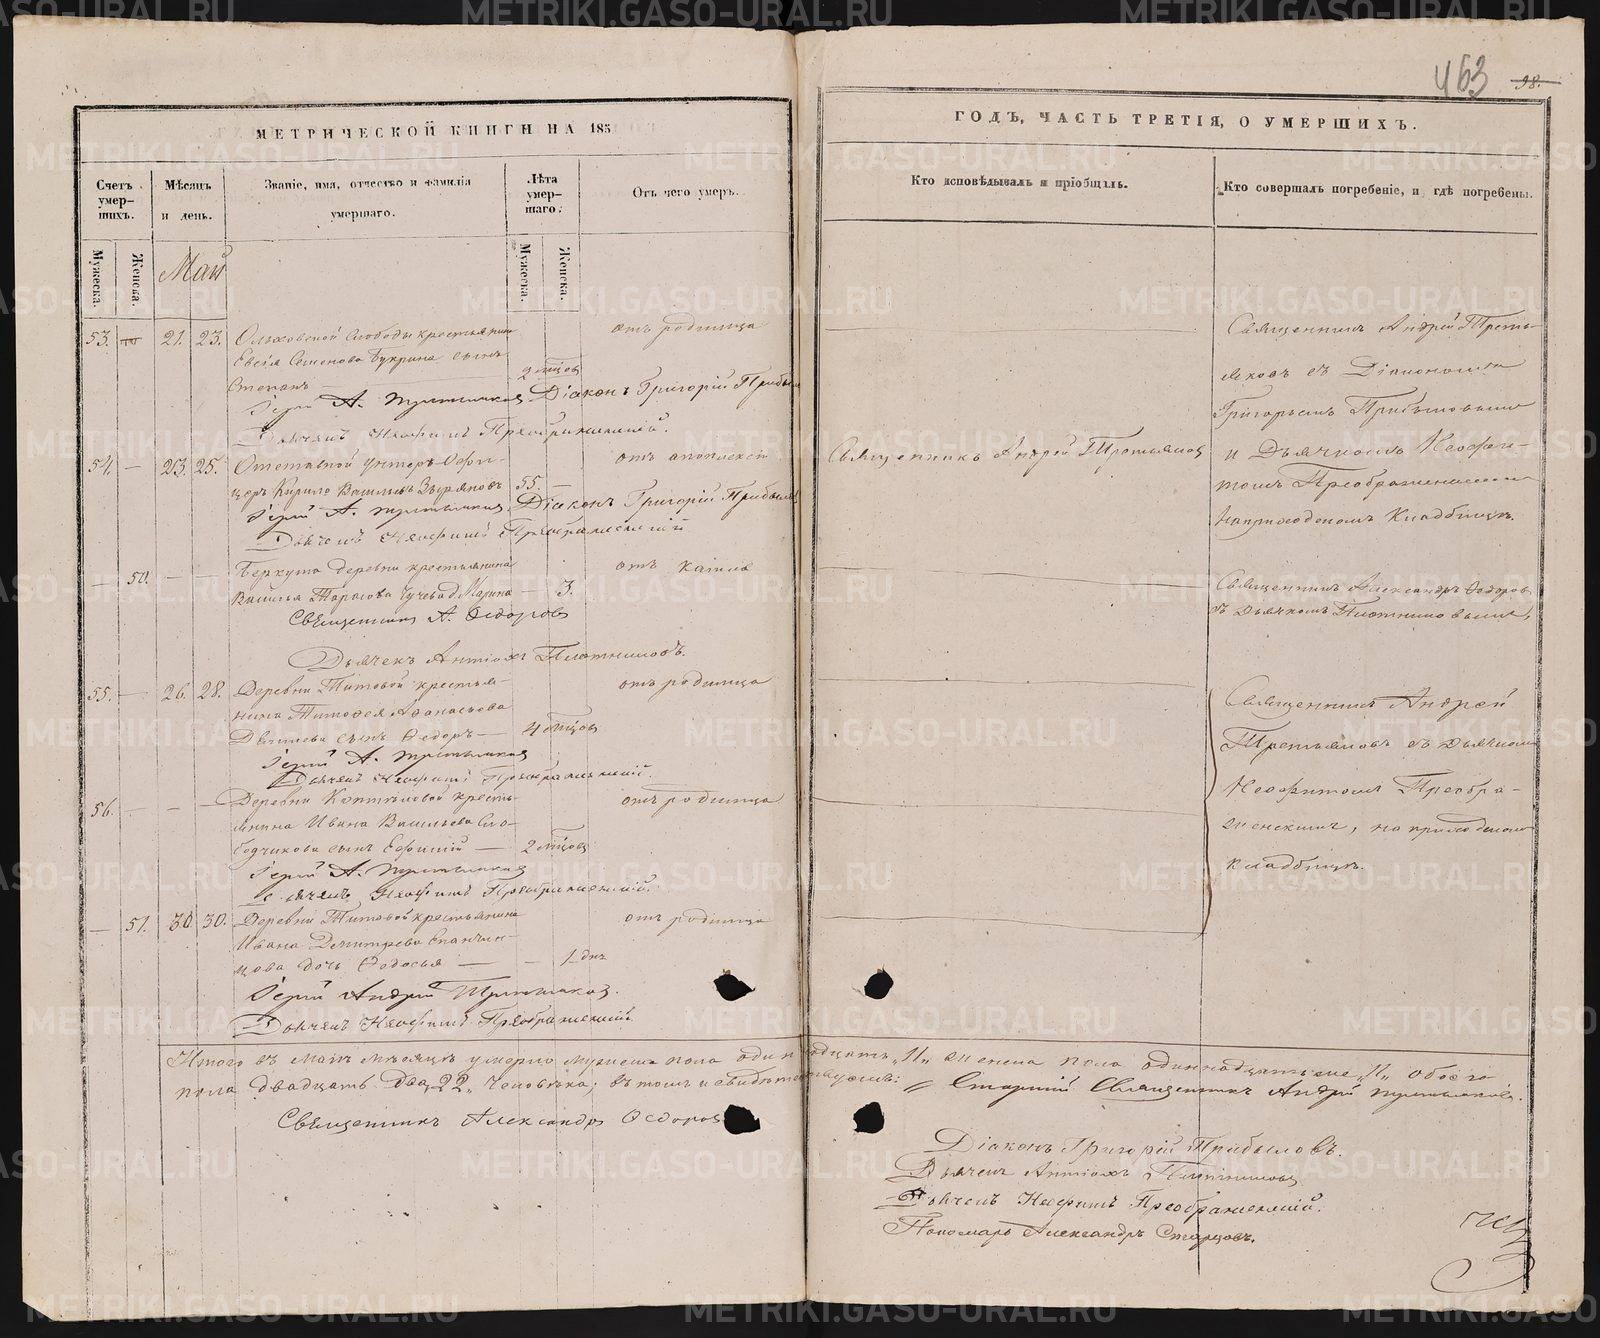 463
98.
МЕТРИЧЕСКОЙ КНИГИ НА 185
ГОДЪ, ЧАСТЬ ТРЕТІЯ, О УМЕРШИХЪ.
Счетъ умер-шихъ.
Мѣсяцъ и день.
Званіе, имя, отчество и фамилія умершаго.
Лѣта умер-шаго.
Отъ чего умеръ.
Кто исповѣдывалъ и пріобщилъ.
Кто совершалъ погребеніе, и гдѣ погребены.
Мужеска.
Женска.
Май
Мужеска.
Женска.
53. 21. 23. Ольховской Слободы крестьянина
Евсія Семенова Букрина сынъ
Степанъ — 2 мѣсяцов
отъ родимца
Іерей А. Третьяковъ Діаконъ Григорій Прибыл
Дьячекъ Неофитъ Преображенскій.
Священникъ Андрей Треть-
яковъ съ Діакономъ
Григорьемъ Прибыловымъ
и Дьячкомъ Неофи-
томъ Преображенскимъ
на приходскомъ кладбищѣ.
54. — 23. 25. Отставной унтеръ-Офи-
церъ Кирило Васильевъ Зыряновъ 55. —
отъ апоплексіи
Священникъ Андрей Третьяковъ
Іерей А. Третьяковъ Діаконъ Григорій Прибыл
Дьячекъ Неофитъ Преображенскій
— 50. — — Беркута деревни крестьянина
Василья Тарасова д. Марина — 3.
отъ кашля
Священникъ Александръ Федоровъ
съ Дьячкомъ Плотниковымъ
Священникъ А. Федоровъ
Дьячекъ Антіохъ Плотниковъ.
55. — 26. 28. Деревни Титовой крестья-
нина Тимофея Афанасьева
сынъ Федоръ — 4 мѣсяцов
отъ родимца
Іерей А. Третьяковъ
Дьячекъ Неофитъ Преображенскій.
Священникъ Андрей
Третьяковъ съ Дьячкомъ
Неофитомъ Преобра-
женскимъ, на приходскомъ
кладбищѣ.
56. — — — Деревни Коптяловой кресть-
янина Ивана Васильева Сло-
бодчикова сынъ Евфимій — 2 мѣсяцов
отъ родимца
Іерей А. Третьяковъ
Дьячекъ Неофитъ Преображенскій.
— 51. 30. 30. Деревни Титовой крестьянина
Ивана Дмитрева Епанчин-
цова дочь Федосья — — 1 дня
отъ родимца
Іерей Андрей Третьяковъ.
Дьячекъ Неофитъ Преображенскій
Итого въ Маѣ мѣсяцѣ умерло мужеска пола одиннадцать „11„ женска пола одиннадцать же „11„ обоего
пола двадцать два „22„ человѣка; въ томъ и свидѣтельствуемъ: Старшій Священникъ Андрей Третьяковъ.
Священникъ Александръ Федоровъ
Діаконъ Григорій Прибыловъ.
Дьячекъ Антіохъ Плотниковъ
Дьячекъ Неофитъ Преображенскій.
Пономарь Александръ Старцовъ.
METRIKI.GASO-URAL.RU